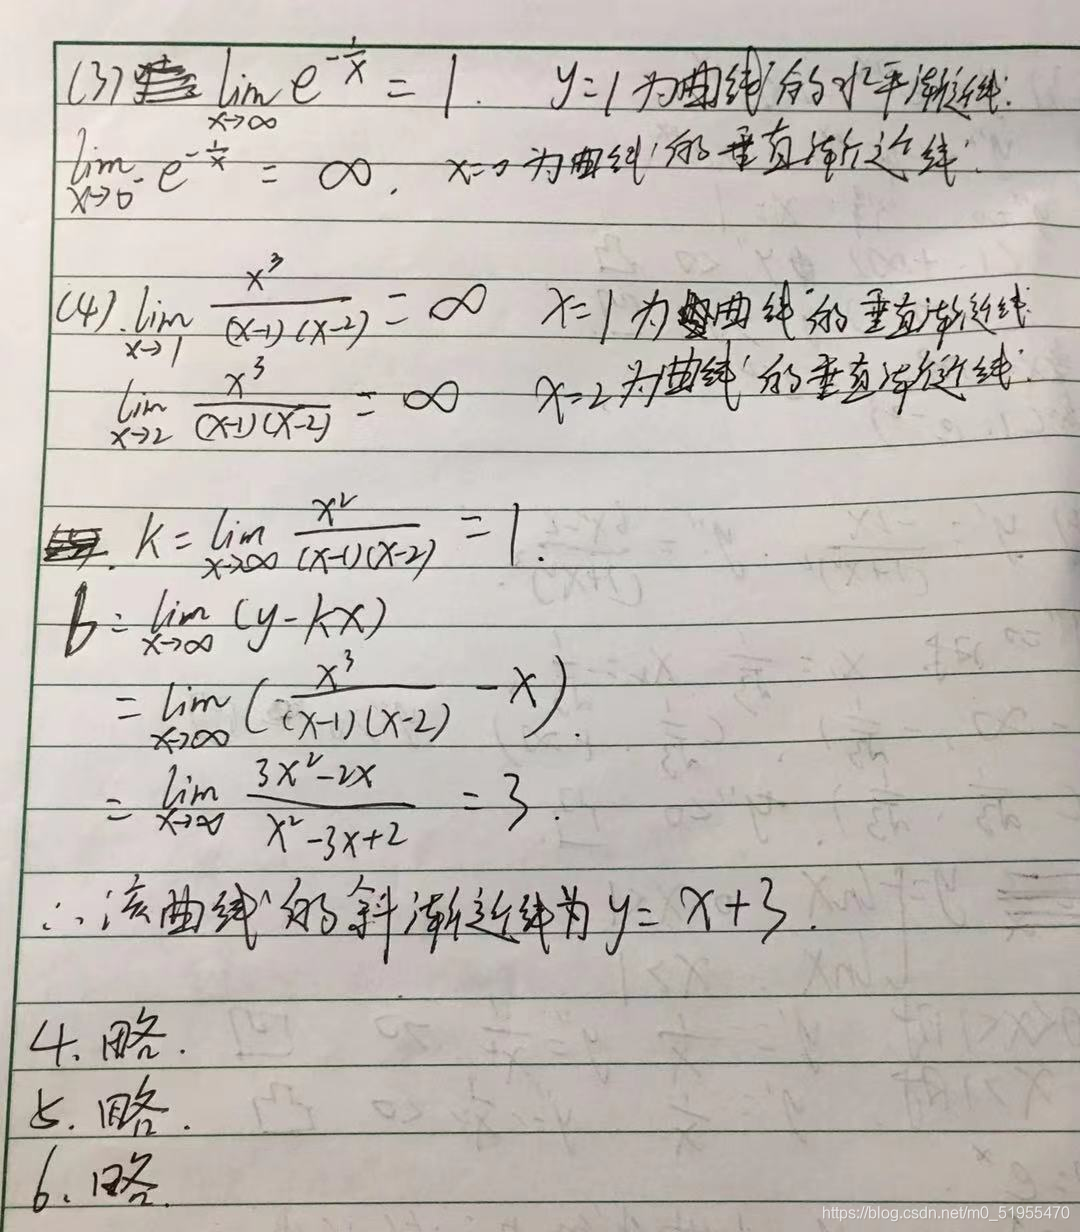 (3) lim x→∞ e^(-1/x) = 1. y=1为曲线的水平渐近线.
lim x→0⁻ e^(-1/x) = ∞. x=0为曲线的垂直渐近线.
(4). lim x→1 x³/((x-1)(x-2)) = ∞ x=1为曲线的垂直渐近线
lim x→2 x³/((x-1)(x-2)) = ∞ x=2为曲线的垂直渐近线.
k = lim x→∞ x²/((x-1)(x-2)) = 1.
b = lim x→∞ (y-kx)
= lim x→∞ (x³/((x-1)(x-2)) - x).
= lim x→∞ (3x²-2x)/(x²-3x+2) = 3.
∴该曲线的斜渐近线为y=x+3.
4. 略.
5. 略.
6. 略.
https://blog.csdn.net/m0_51955470